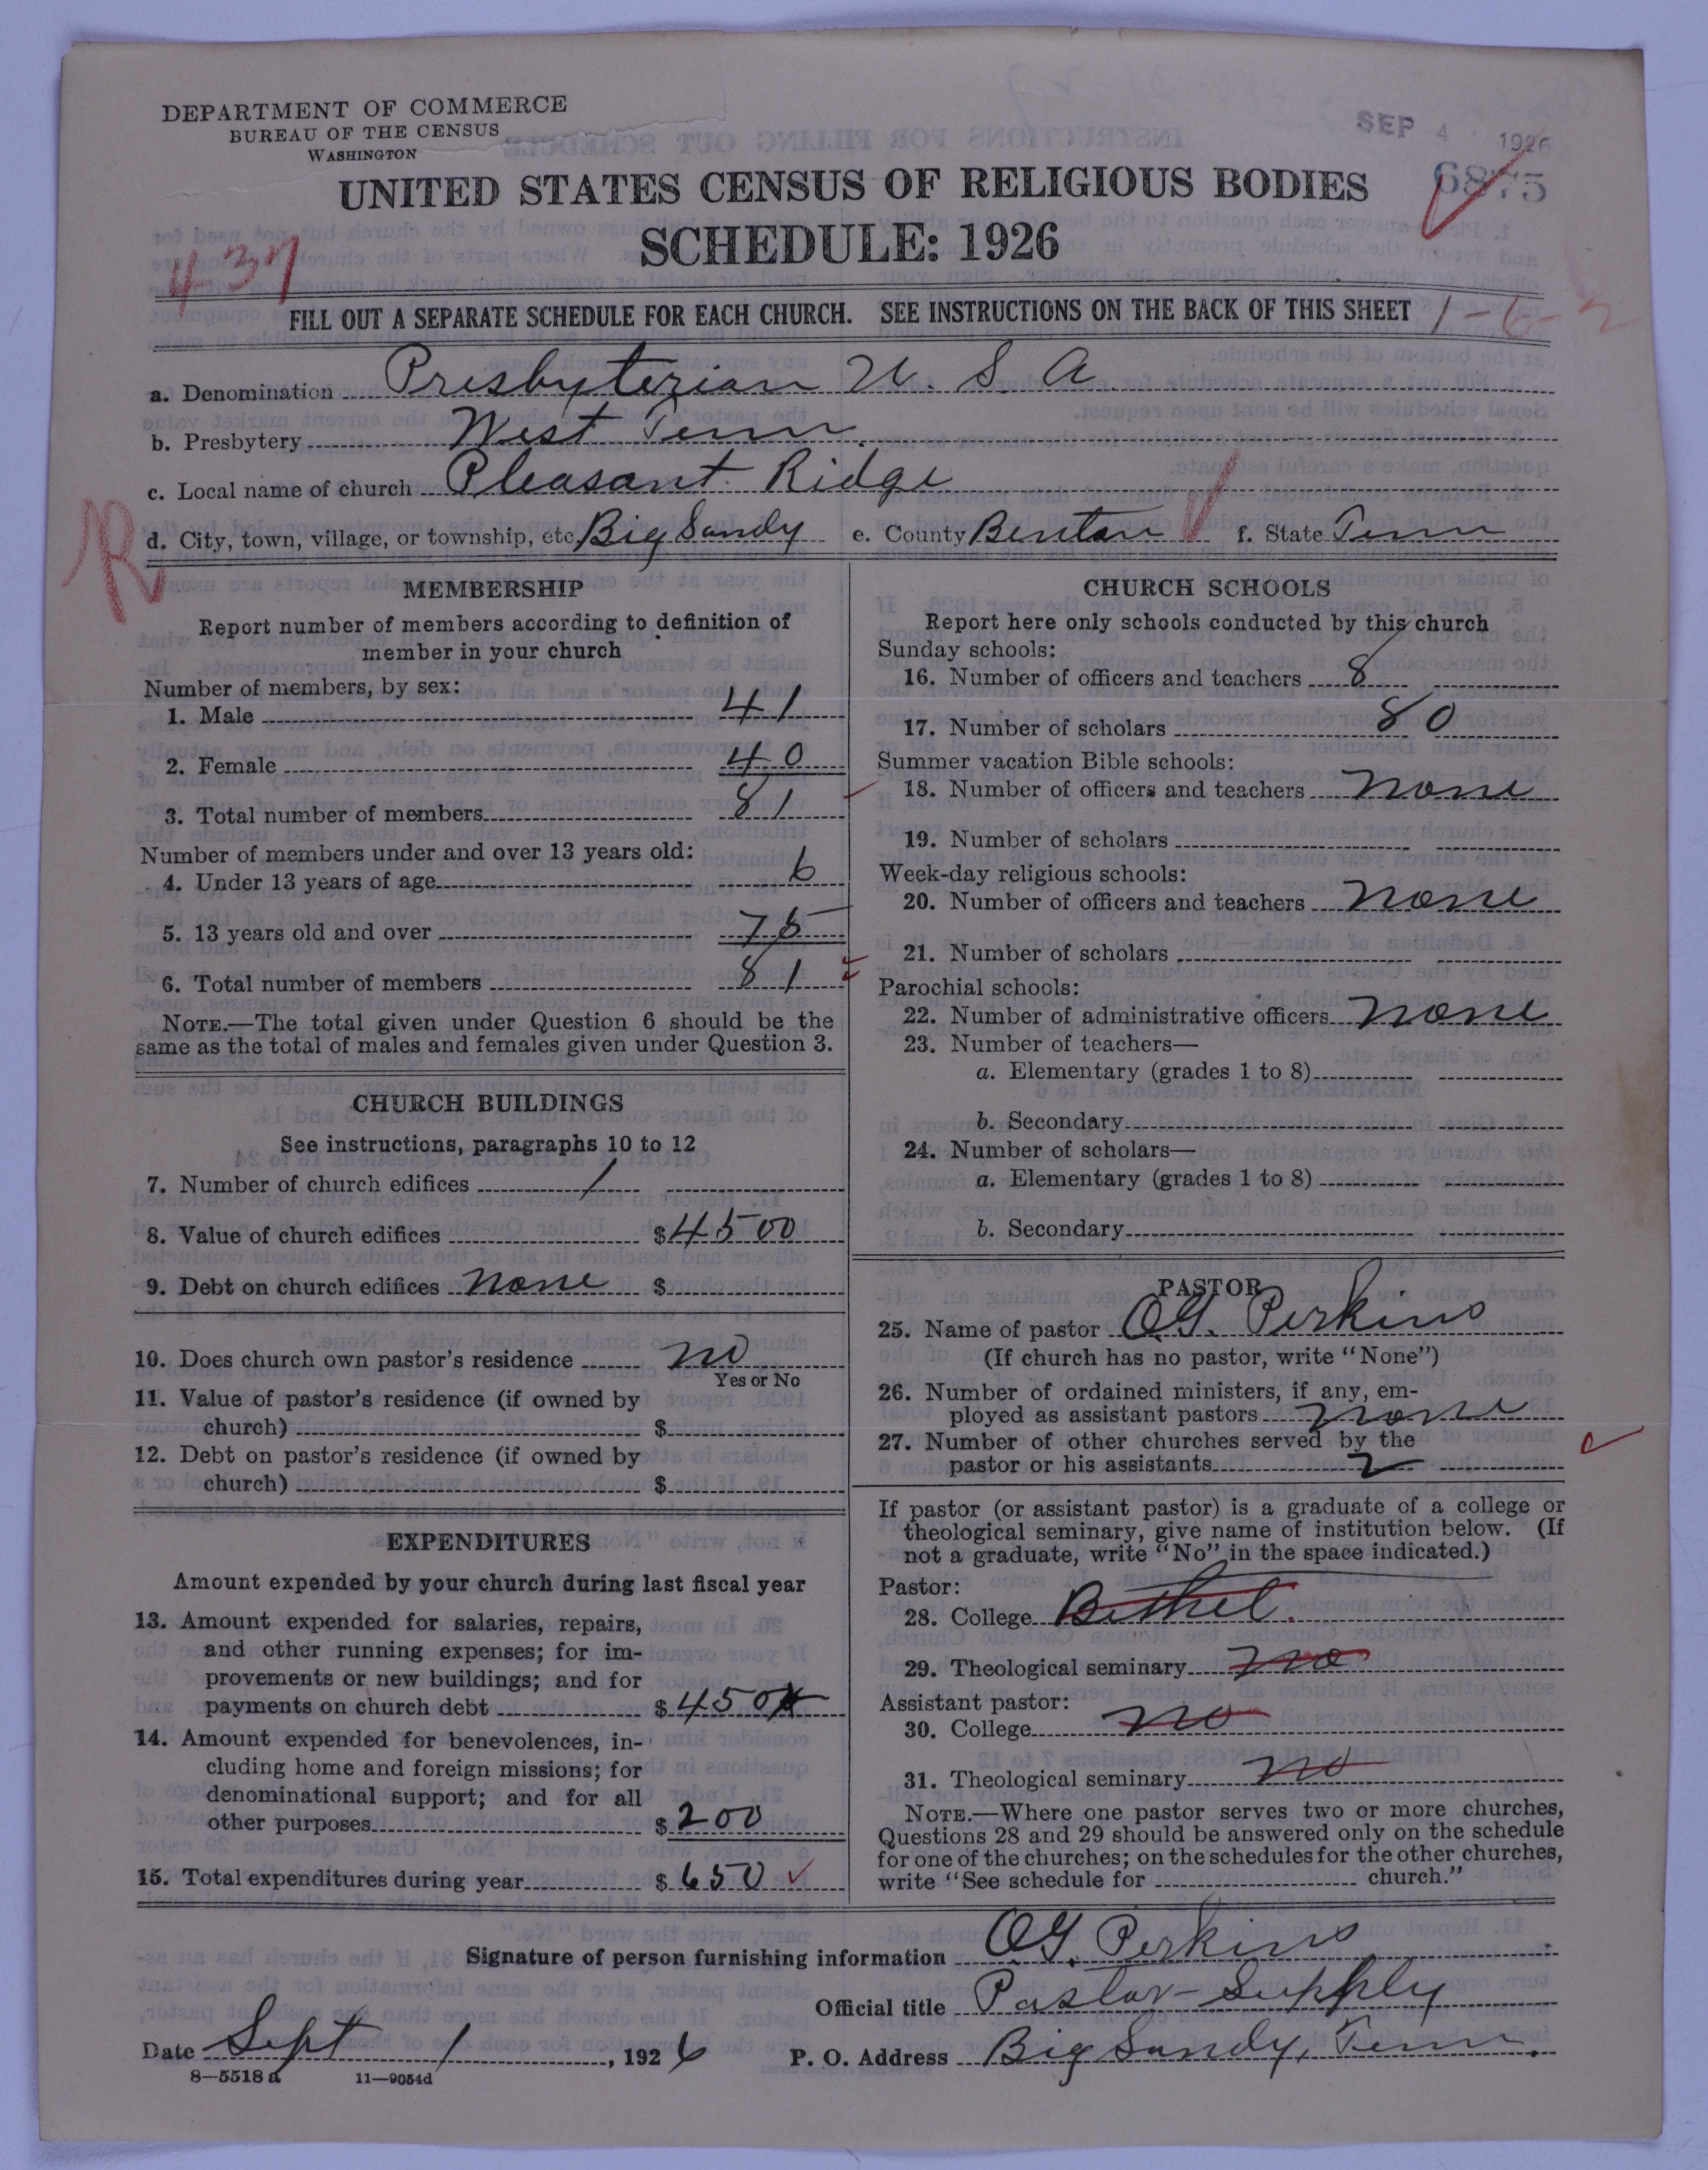 DEPARTMENT OF COMMERCE
BUREAU OF THE CENSUS
WASHINGTON
SEP 4 1926
6875
UNITED STATES CENSUS OF RELIGIOUS BODIES
SCHEDULE: 1926
437
FILL OUT A SEPARATE SCHEDULE FOR EACH CHURCH. SEE INSTRUCTIONS ON THE BACK OF THIS SHEET 1-6-2
a. Denomination Presbyterian U. S. A
b. Presbytery West Tenn.
c. Local name of church Pleasant Ridge
R
d. City, town, village, or township, etc. Big Sandy e. County Benton f. State Tenn
MEMBERSHIP
Report number of members according to definition of
member in your church
Number of members, by sex:
1. Male 41
2. Female 40
3. Total number of members 81
Number of members under and over 13 years old:
4. Under 13 years of age 6
5. 13 years old and over 75
6. Total number of members 81
NOTE.—The total given under Question 6 should be the
same as the total of males and females given under Question 3.
CHURCH BUILDINGS
See instructions, paragraphs 10 to 12
7. Number of church edifices 1
8. Value of church edifices $4500
9. Debt on church edifices none $
10. Does church own pastor's residence no
Yes or No
11. Value of pastor's residence (if owned by
church) $
12. Debt on pastor's residence (if owned by
church) $
EXPENDITURES
Amount expended by your church during last fiscal year
13. Amount expended for salaries, repairs,
and other running expenses; for im-
provements or new buildings; and for
payments on church debt $450
14. Amount expended for benevolences, in-
cluding home and foreign missions; for
denominational support; and for all
other purposes $200
15. Total expenditures during year $650
CHURCH SCHOOLS
Report here only schools conducted by this church
Sunday schools:
16. Number of officers and teachers 8
17. Number of scholars 80
Summer vacation Bible schools:
18. Number of officers and teachers none
19. Number of scholars
Week-day religious schools:
20. Number of officers and teachers none
21. Number of scholars
Parochial schools:
22. Number of administrative officers none
23. Number of teachers—
a. Elementary (grades 1 to 8)
b. Secondary
24. Number of scholars—
a. Elementary (grades 1 to 8)
b. Secondary
PASTOR
25. Name of pastor O.G. Perkins
(If church has no pastor, write "None")
26. Number of ordained ministers, if any, em-
ployed as assistant pastors none
27. Number of other churches served by the
pastor or his assistants 2
If pastor (or assistant pastor) is a graduate of a college or
theological seminary, give name of institution below. (If
not a graduate, write "No" in the space indicated.)
Pastor:
28. College Bethel.
29. Theological seminary no
Assistant pastor:
30. College no
31. Theological seminary no
NOTE.—Where one pastor serves two or more churches,
Questions 28 and 29 should be answered only on the schedule
for one of the churches; on the schedules for the other churches,
write "See schedule for church."
Signature of person furnishing information O.G. Perkins
Official title Pastor-Supply
Date Sept 1, 1926 P. O. Address Big Sandy, Tenn.
8—5518a 11—9054d